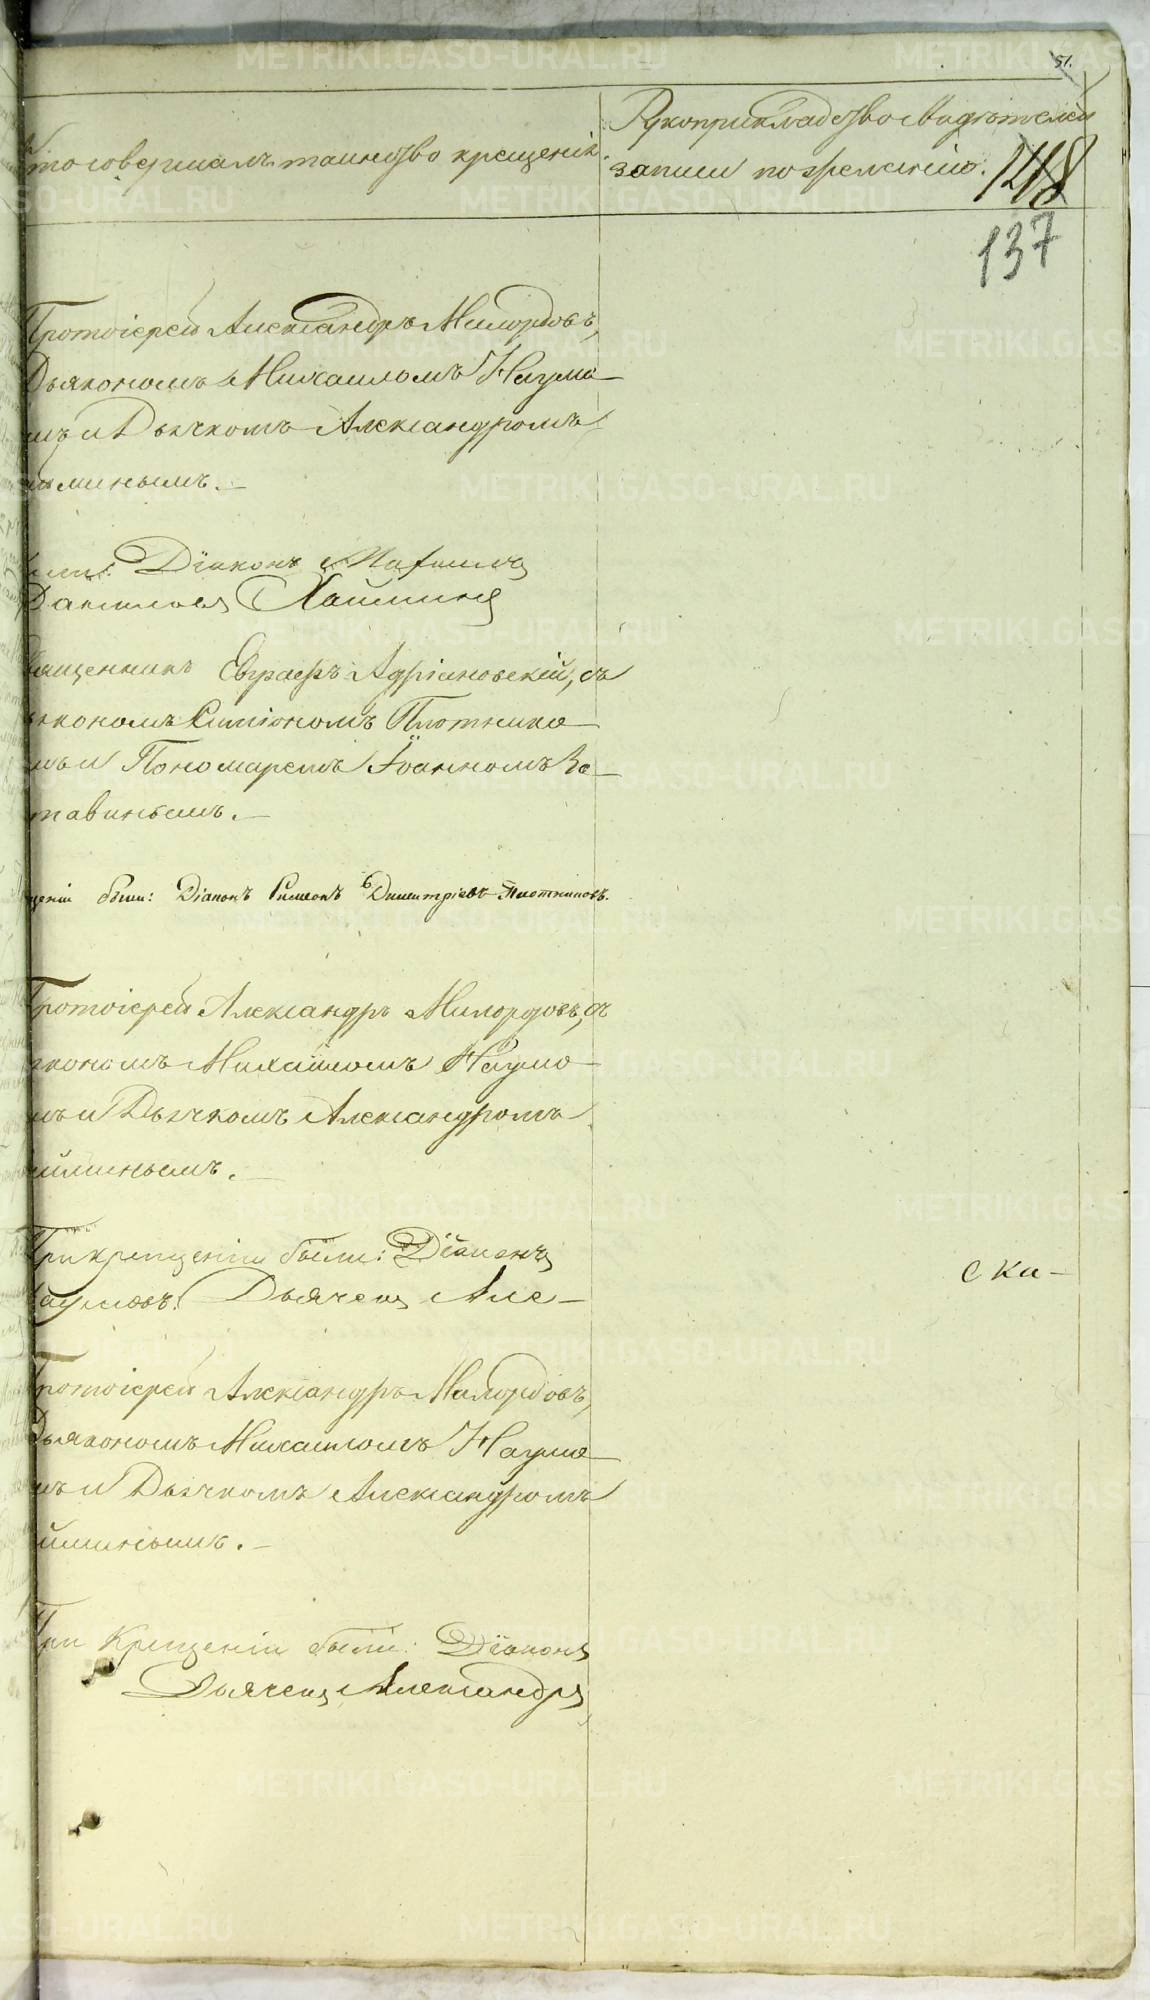 51.
Кто совершалъ таинство крещенія
Рукоприкладство свидѣтелей
записи по желанію.
148
137
Протоіерей Александръ Милордовъ,
Дьякономъ Михаиломъ Наумо-
мъ и Дьячкомъ Александромъ
миньімъ.—
Діаконъ
священникъ Евграфъ Адріановскій, съ
ьякономъ Симіономъ Плотнико-
мъ и Пономаремъ Іоанномъ За-
тавинымъ.—
щеніи были: Діаконъ Симеонъ Димитріевъ Плотниковъ.
Протоіерей Александръ Милордовъ, съ
якономъ Михаиломъ Наумо-
мъ и Дьячкомъ Александромъ
йминымъ.—
При крещеніи были: Діаконъ
Наумовъ. Дьячекъ Але-
ска-
Протоіерей Александръ Милордовъ,
Дьякономъ Михаиломъ Наумо-
мъ и Дьячкомъ Александромъ
йминымъ.—
При Крещеніи были: Діаконъ
Дьячекъ Александръ
METRIKI.GASO-URAL.RU